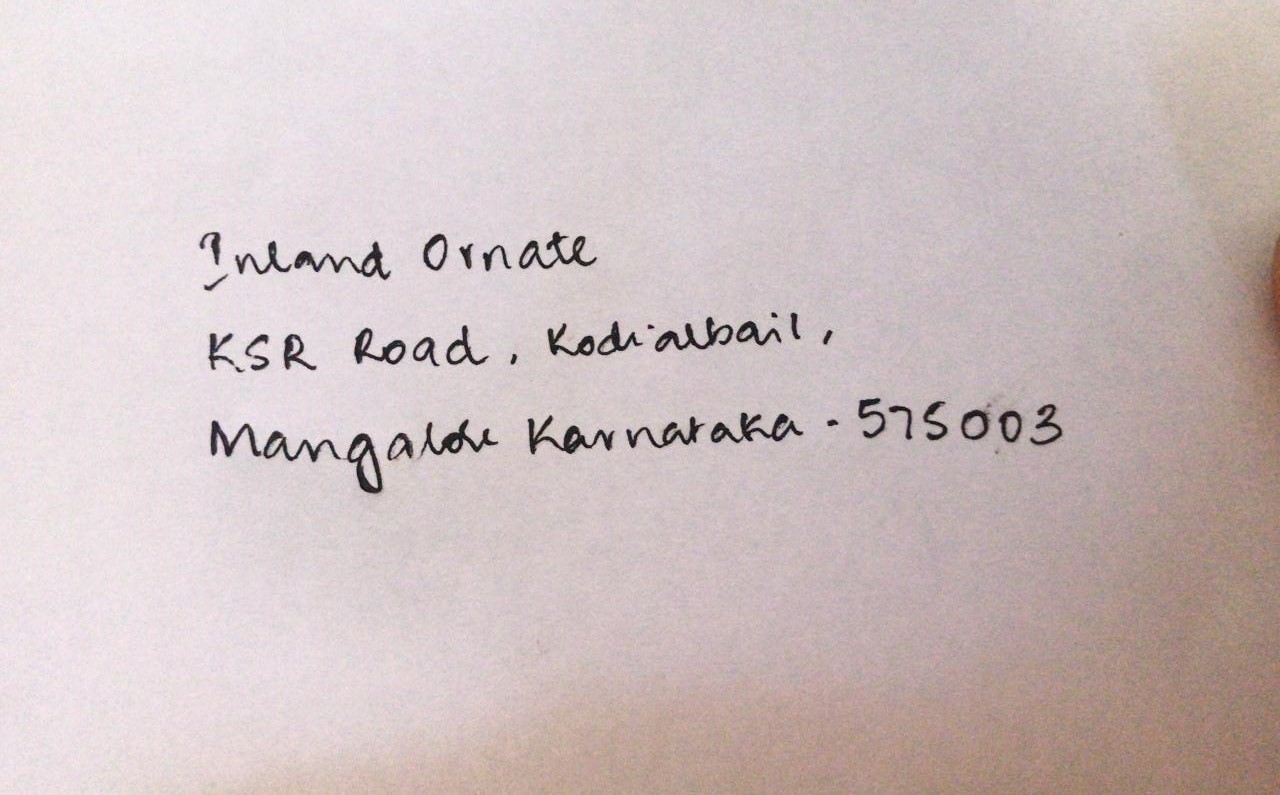 Inland Ornate
KSR Road, Kodialbail,
Mangalore Karnataka - 575003